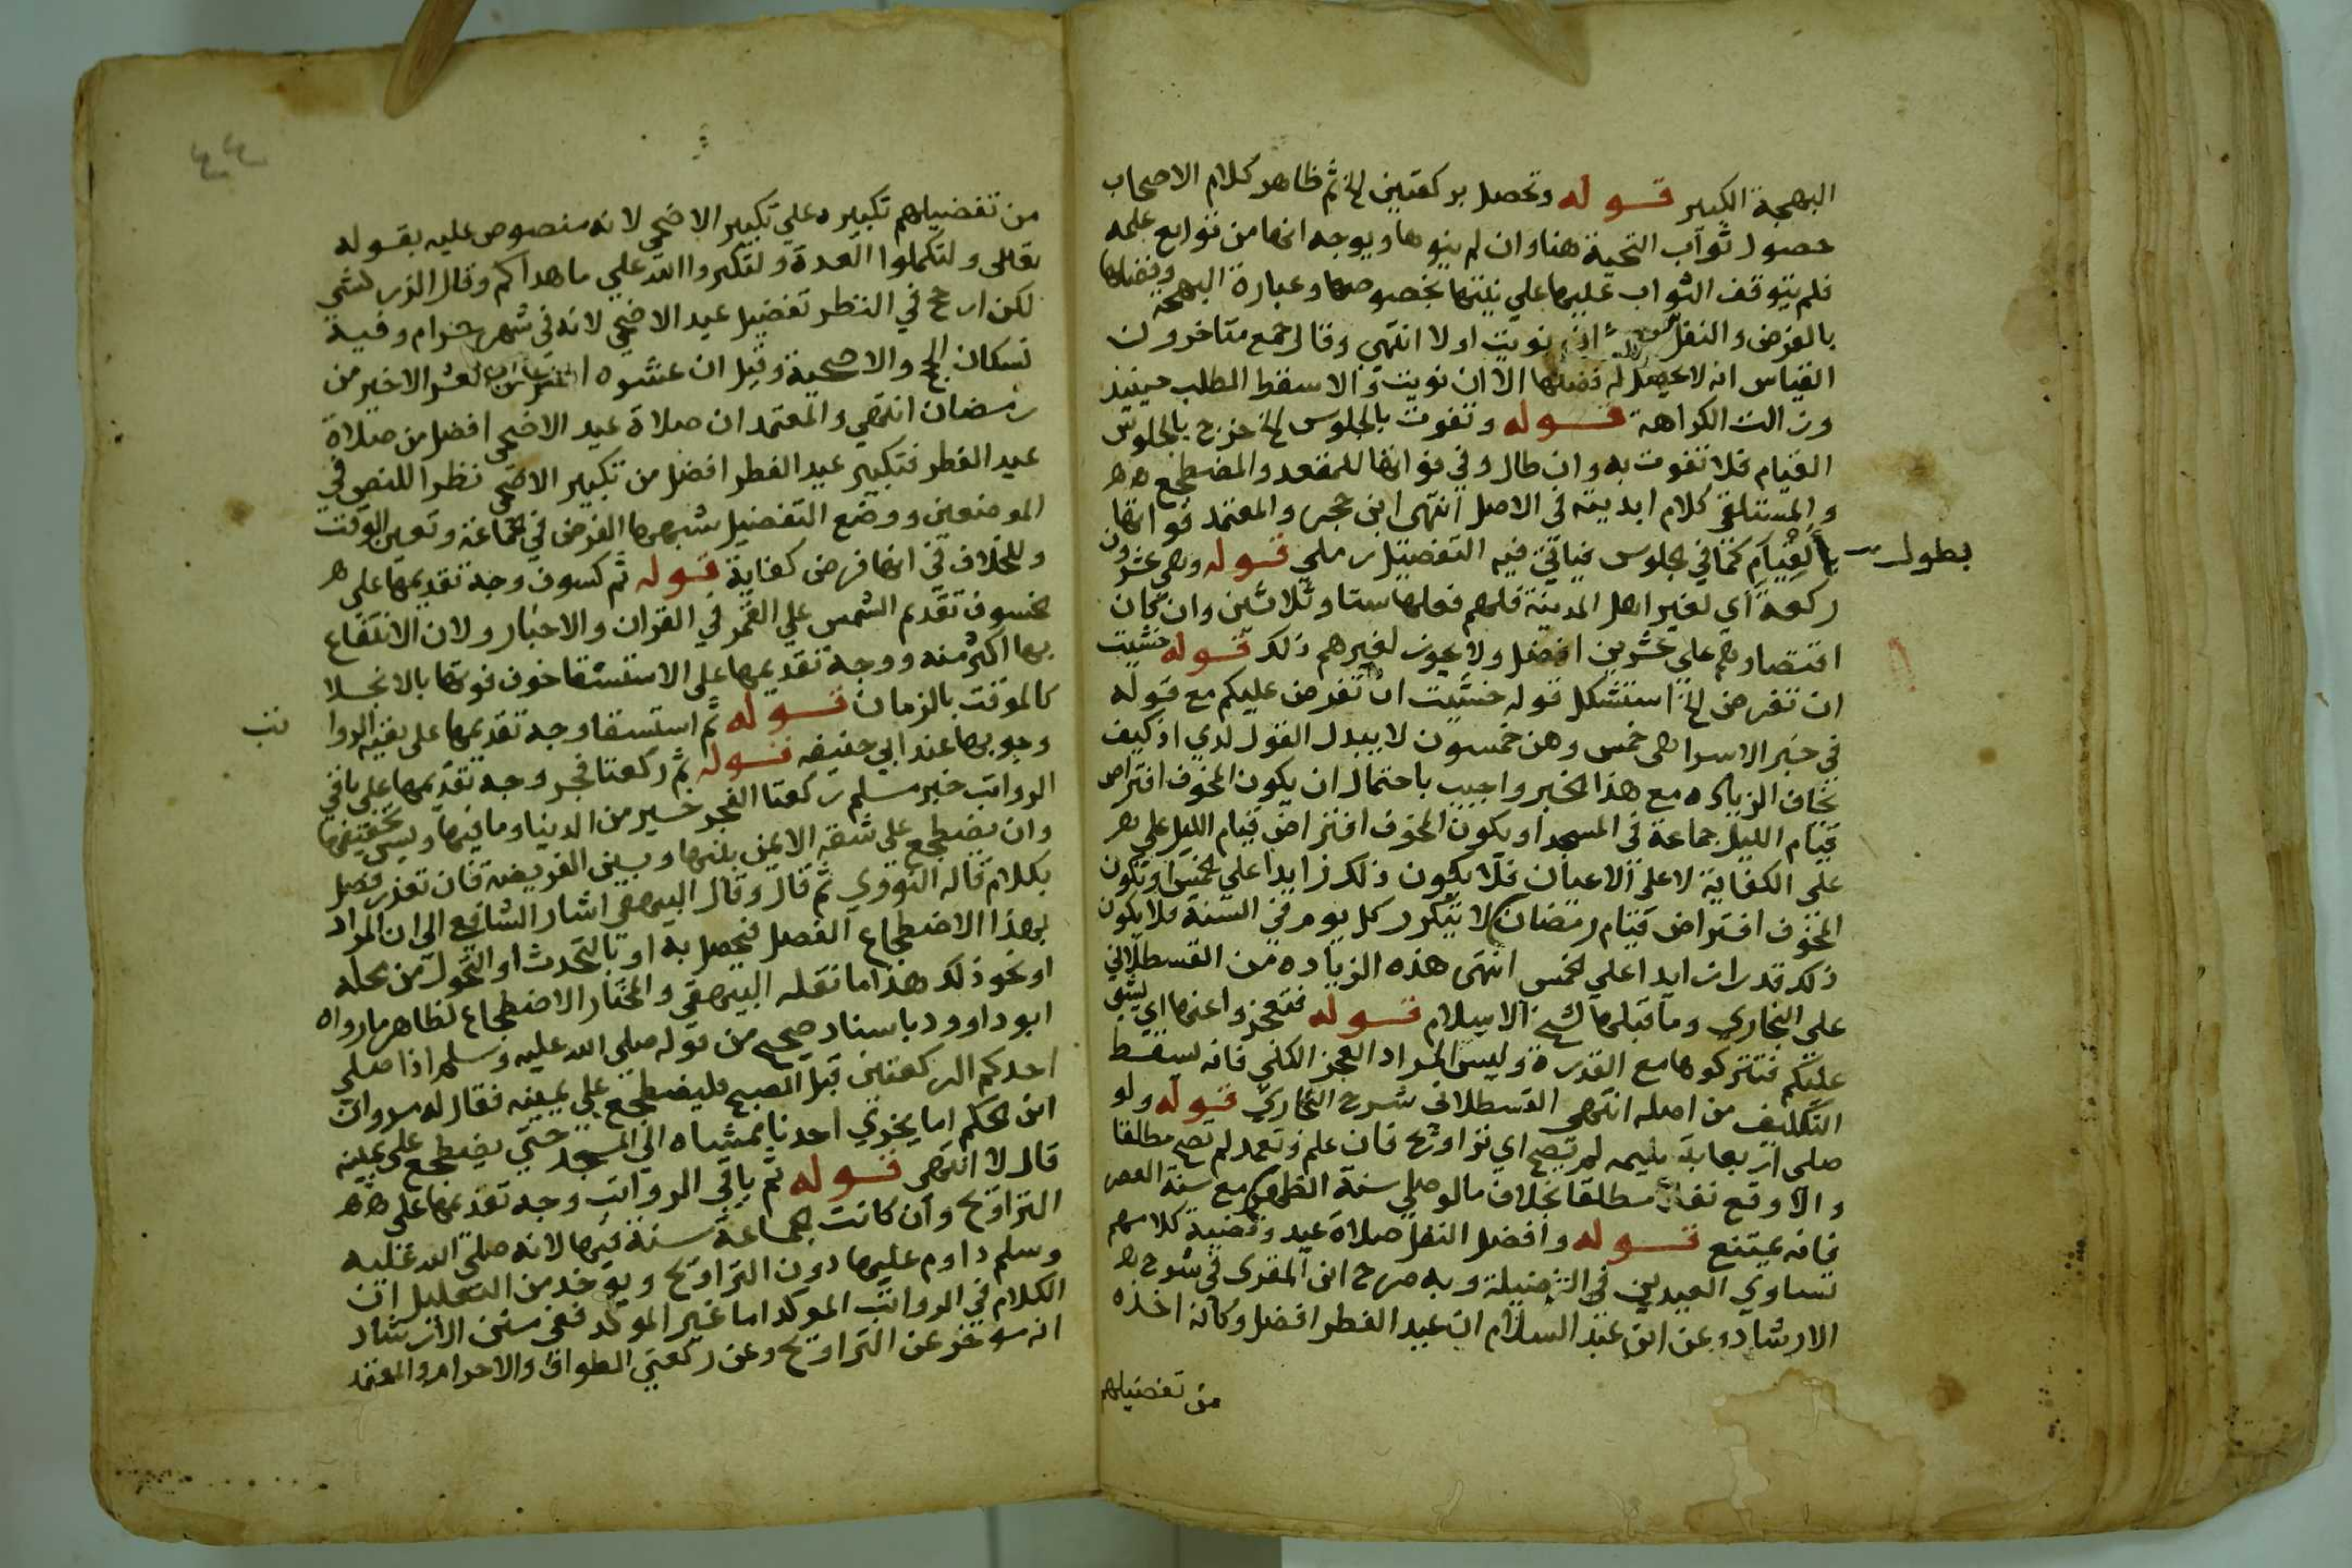 البهجة الكبير قوله وتحصل بركعتين الخ ثم ظاهر كلام الاصحاب
حصول ثواب التحية هنا وان لم ينوها ويوجه انها من توابع
فلم يتوقف الثواب عليها على نيتها بخصوصها وعبارة البهجة وفضلها
بالفرض والنفل نويت اولا انتهي وقال جمع متاخرون
القياس انه لا يحصل له فضلها الا ان نويت والا سقط الطلب حينئذ
وزالت الكراهة قوله وتفوت بالجلوس الخ خرج بالجلوس
القيام فلا تفوت به وان طال وفي فواتها للمقعد والمضطجع
والمستلقي كلام ابديته في الاصل انتهى ابن حجر والمعتمد فواتها
بطول
بالقيام كما في الجلوس فياتي فيه التفصيل رملي قوله وهي عشرون
ركعة اي لغير اهل المدينة فلهم فعلها ستا وثلاثين وان كان
اقتصارهم علي عشرين افضل ولا يجوز لغيرهم ذلك قوله خشيت
ان تفرض الخ استشكل قوله خشيت ان تفرض عليكم مع قوله
في خبر الاسرا هي خمس وهن خمسون لا يبدل القول لدي اذ كيف
يخاف الزياده مع هذا الخبر واجيب باحتمال ان يكون المخوف افتراض
قيام الليل جماعة في المسجد او يكون المخوف افتراض قيام الليل علي
على الكفاية لا على الاعيان فلا يكون ذلك زايدا علي الخمس او يكون
المخوف افتراض قيام رمضان لا يتكرر كل يوم في السنة فلا يكون
ذلك قدرا زايدا علي الخمس انتهى هذه الزياده من القسطلاني
على البخاري وما قبلها لشيخ الاسلام قوله فتعجزوا عنها اي يشق
عليكم فتتركوها مع القدرة وليس المراد العجز الكلي فانه يسقط
التكليف من اصله انتهى القسطلاني شرح البخاري قوله ولو
صلى اربعا بتسليمه لم تصح اي تراويح فان علم وتعمد لم تصح مطلقا
والا وقع نفلا مطلقا بخلاف ما لو صلي سنة الظهر مع سنة العصر
فانه يمتنع قوله وافضل النفل صلاة عيد وقضية كلامهم
تساوي العيدين في الفضيلة وبه صرح ابن المقري في شرح
الارشاد وعن ابن عبد السلام ان عيد الفطر افضل وكانه اخذه
من تفضيلهم
من تفضيلهم تكبيره علي تكبير الاضحى لانه منصوص عليه بقوله
تعالى ولتكملوا العدة ولتكبروا الله علي ما هداكم وقال الزركشي
لكن ارجح في النظر تفضيل عيد الاضحى لانه في شهر حرام وفيه
نسكان الحج والاضحية وقيل ان عشره العشر الاخير من
رمضان انتهي والمعتمد ان صلاة عيد الاضحى افضل من صلاة
عيد الفطر فتكبير عيد الفطر افضل من تكبير الاضحى نظرا للنص في
الموضعين ووضع التفضيل شبهها الفرض في الجماعة وتعين الوقت
وللخلاف في انها فرض كفاية قوله ثم كسوف وجه تقديمها على
خسوف تقدم الشمس علي القمر في القران والاخبار ولان الانتفاع
بها اكثر منه ووجه تقديمها على الاستسقا خوف فوتها بالانجلا
كالموقت بالزمان قوله ثم استسقا وجه تقديمها على بقية الروا
تب
وجوبها عند ابي حنيفه قوله ثم ركعتا فجر وجه تقديمها علي باقي
الرواتب خبر مسلم ركعتا الفجر خير من الدنيا وما فيها ويسن تخفيفها
وان يضطجع على شقه الايمن بينها وبين الفريضه فان تعذر فصل
بكلام قاله النووي ثم قال وقال البيهقي اشار الشافعي الى ان المراد
بهذا الاضطجاع الفصل فيحصل به او بالتحدث او التحول من محله
او نحو ذلك هذا ما نقله البيهقي والمختار الاضطجاع لظاهر ما رواه
ابو داوود باسناد صحيح من قوله صلى الله عليه وسلم اذا صلي
احدكم الركعتين قبل الصبح فليضطجع علي يمينه فقال له مروان
ابن الحكم اما يجزي احدنا ممشاه الي المسجد حتى يضطجع على يمينه
قال لا انتهى قوله ثم باقي الرواتب وجه تقديمها على
التراويح وان كانت الجماعة سنة فيها لانه صلى الله عليه
وسلم داوم عليها دون التراويح ويوخذ من التعليل ان
الكلام في الرواتب الموكد اما غير الموكد ففي متن الارشاد
انه موخر عن التراويح وعن ركعتي الطواف والاحرام والمعتمد